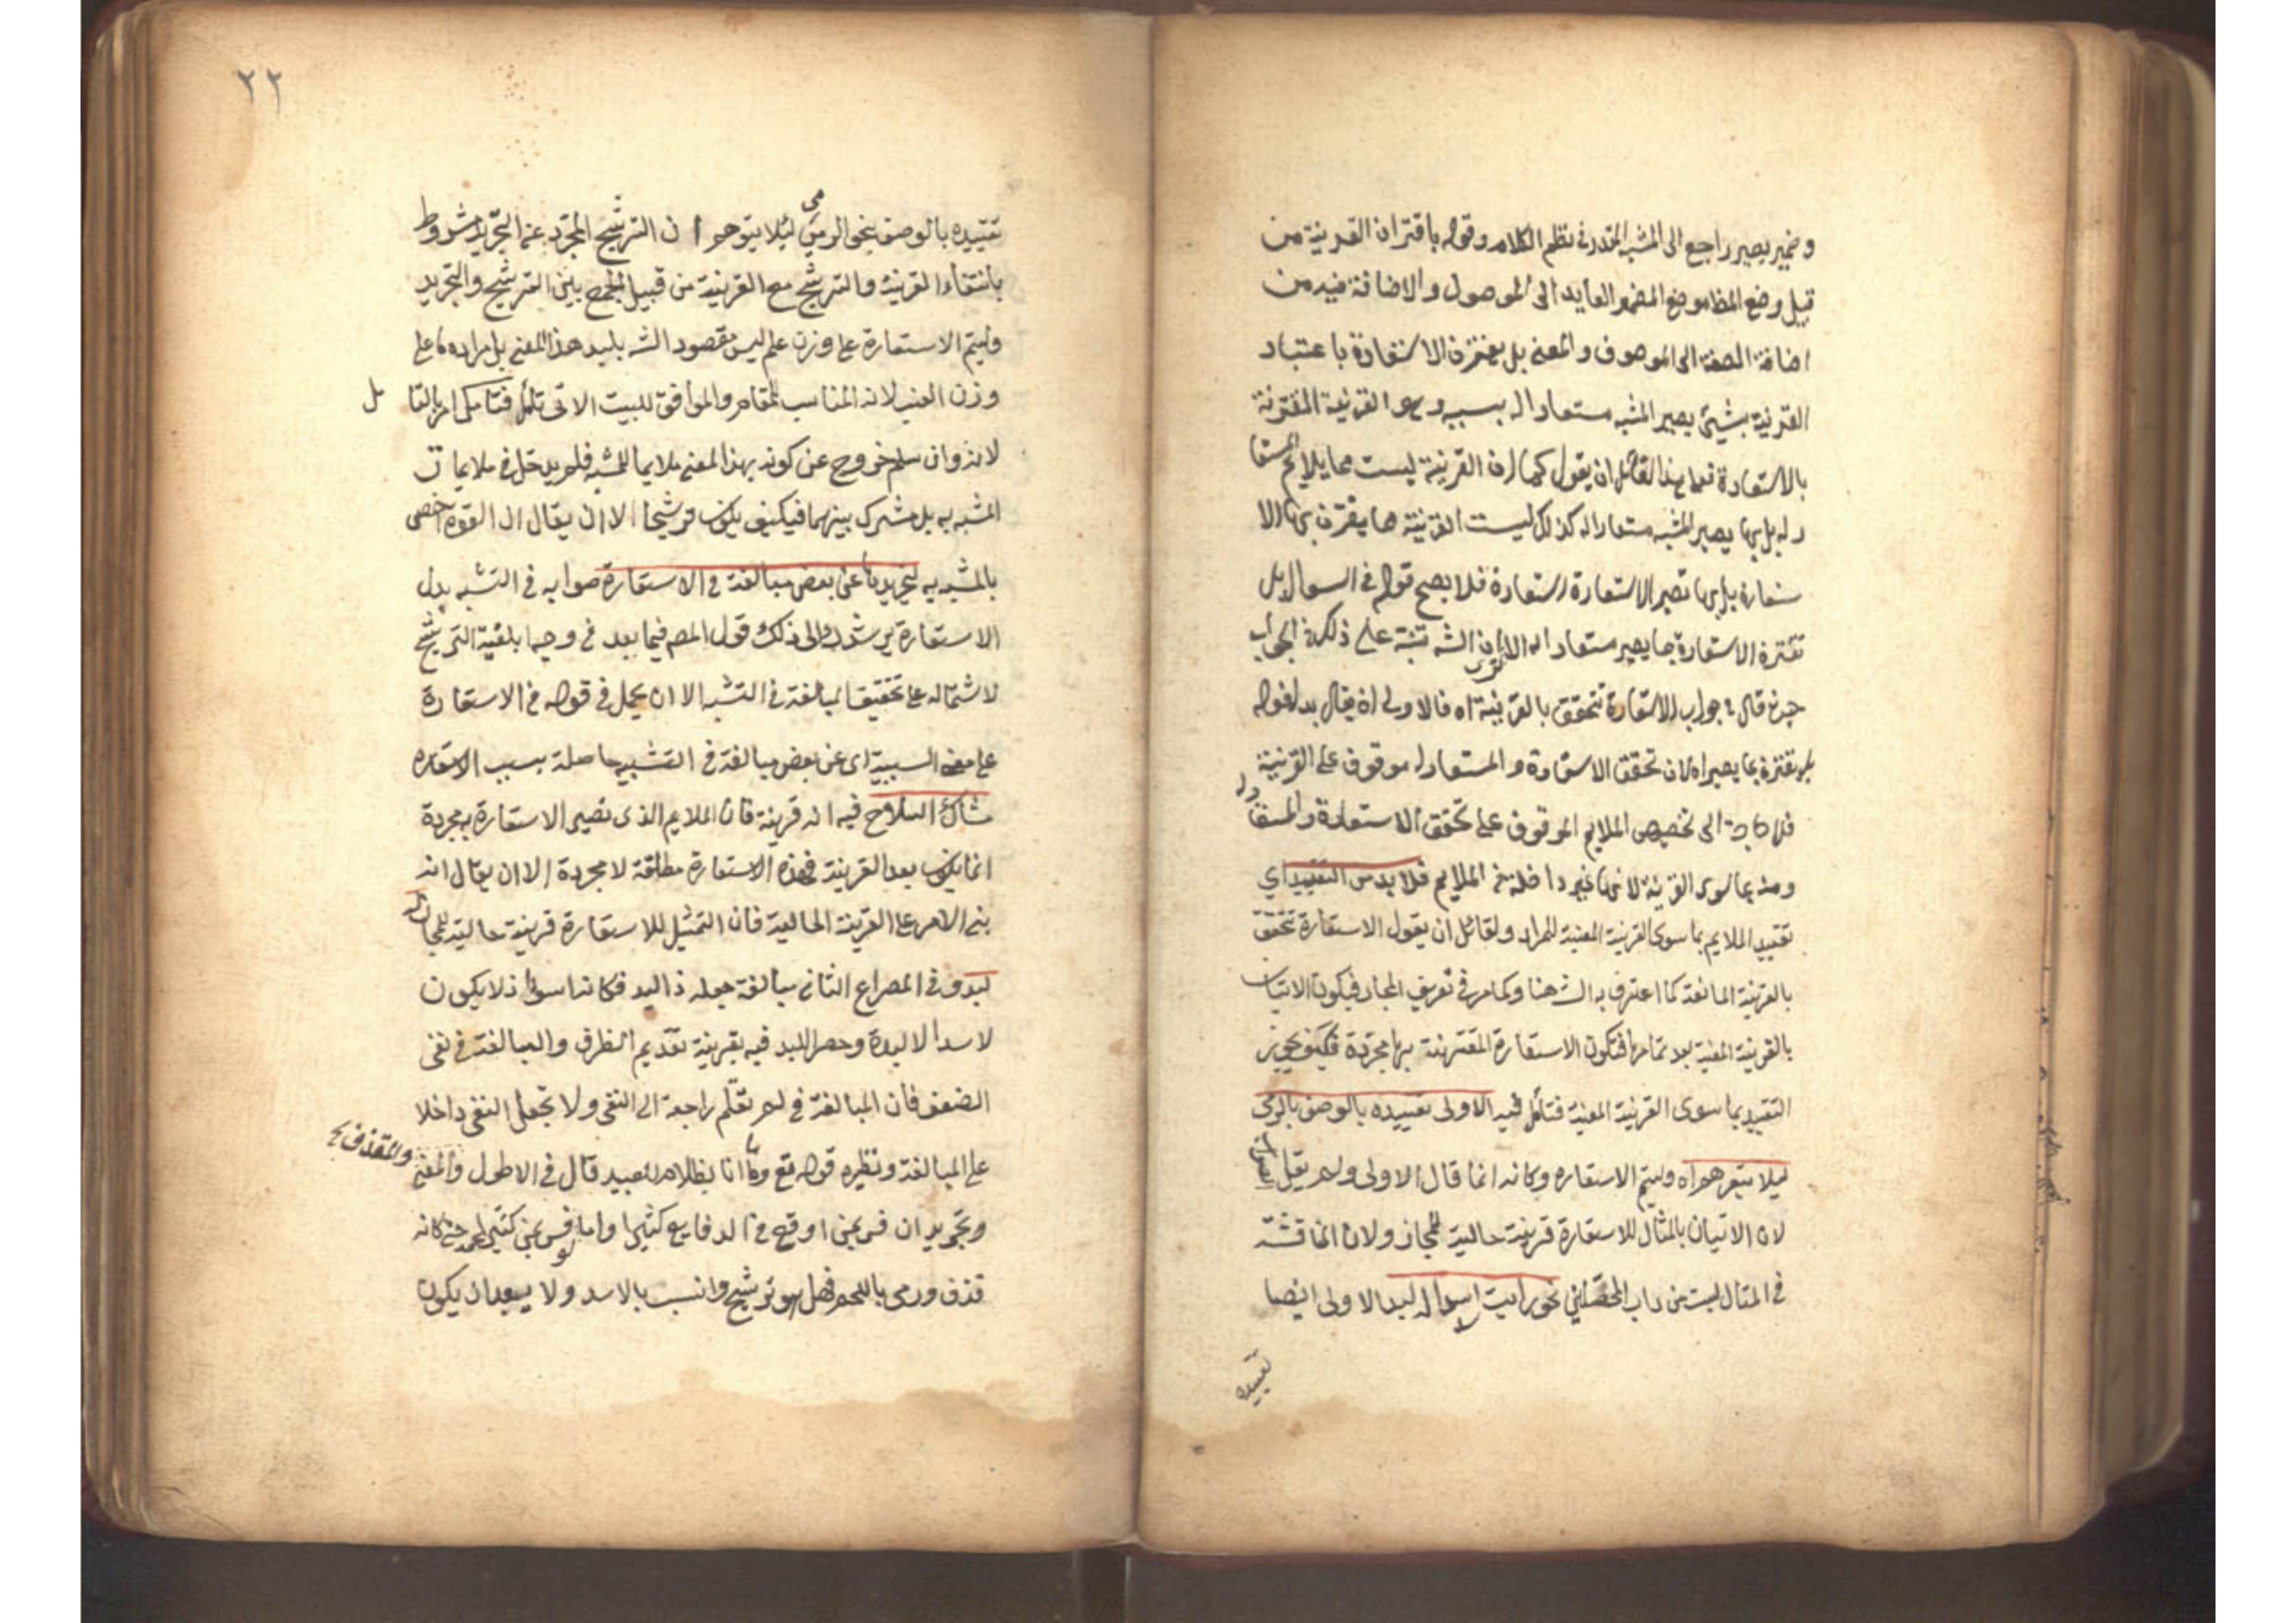 وضمير يصير راجع الى المشبه المقدر في نظم الكلام وقوله باقتران القرينة من
قبيل وضع المظهر موضع المضمر العايد الى الموصول والاضافة فيه من
اضافة الصفة الى الموصوف والمعنى بل يقترن الاستعارة باعتبار
القرينة بشيئ يصير المشبه مستعارا له بسببه وهو القرينة المقترنة
بالاستعارة فعلى هذا لقائل ان يقول كما ان القرينة ليست مما يلايم المستعا
رله بل بها يصير المشبه مستعارا له كذلك ليست القرينة مما يقترن بها الا
ستعارة بل بها تصير الاستعارة استعارة فلا يصح قوله في السوال بل
تقترن الاستعارة بما يصير مستعارا له الا ان الشه تنبه على ذلك في الجواب
حيث قال في جواب الاستعارة تتحقق بالقرينة اه فالاولى ان يقال بدل قوله
بل تقترن بما يصير اه لان تحقق الاستعارة والمستعار له موقوف على القرينة
فلا حاجة الى تخصيص الملايم الموقوف على تحقق الاستعارة والمستعا رله
ومنه بما سوى القرينة لانها غير داخلة في الملايم فلا بد من التقييد اي
تقييد الملايم بما سوى القرينة المعينة للمراد ولقائل ان يقول الاستعارة تتحقق
بالقرينة المانعة كما اعترف به الشه هنا وكما مر في تعريف المجاز فيكون الاتيان
بالقرينة المعينة بعد تمامها فتكون الاستعارة المقترنة بها مجردة فكيف يجوز
التقييد بما سوى القرينة المعينة فتأمل فيه الاولى تقييده بالوصف بالرمى
ليلا يتوهم اه وليتم الاستعاره وكانه انما قال الاولى ولم يقل الصواب
لان الاتيان بالمثال للاستعارة قرينة حالية للمجاز ولان المناقشة
في المثال ليست من داب المحصلين نحو رايت اسدا له لبد الاولى ايضا
تقييده
٢٢
تقييده بالوصف بنحو الرمى ليلا يتوهم ان الترشيح المجرد عن التجريد مشروط
بانتفاء القرينة والترشيح مع القرينة من قبيل الجمع بين الترشيح والتجريد
وليتم الاستعارة على وزن علم ليس مقصود الشه بلبد هذا المعنى بل مراده ما على
وزن العنب لانه المناسب للمقام والموافق للبيت الاتى تأمل فتأمل امر بالتا مل
لانه وان سلم خروج عن كونه بهذا المعنى ملايما للمشبه فلم يدخل في ملايمات
المشبه به بل مشترك بينهما فيكيف يكون ترشيحا الا ان يقال ان القوة اخص
بالمشبه به لتجريدها عن بعض مبالغة في الاستعارة صوابه في التشبه بدل
الاستعارة يرشدك الى ذلك قول المص فيما بعد في وجه ابلغية الترشيح
لاشتماله على تحقيق المبالغة في التشبه الا ان يحمل في قوله في الاستعارة
على معنى السببية اى عن بعض مبالغة في التشبيه حاصلة بسبب الاستعاره
شاك السلاح فيه انه قرينة فان الملايم الذى تصير الاستعارة به مجردة
انما يكون بعد القرينة فهذه الاستعارة مطلقة لا مجردة الا ان يقال انه
بنى الامر على القرينة الحالية فان التمثيل للاستعارة قرينة حالية للمجاز له
لبد وفي المصراع الثاني مبالغة جعله ذا لبد فكانه اسود اذ لا يكون
لاسد الا لبدة وحصر اللبد فيه بقرينة تقديم الظرف والمبالغة في نفى
الضعف فان المبالغة في لم تقلم راجعة الى النفى ولا تجعل النفى داخلا
على المبالغة ونظيره قوله تع وما انا بظلام للعبيد قال في الاطول والمعنى والمقذف
وتجويد ان فسر بمن اوقع في الدفايع كثيرا واما لو فسر بمن كثير لحمه حتى كانه
قذف ورمى باللحم فهل هو ترشيح وانسب بالاسد ولا يبعد ان يكون